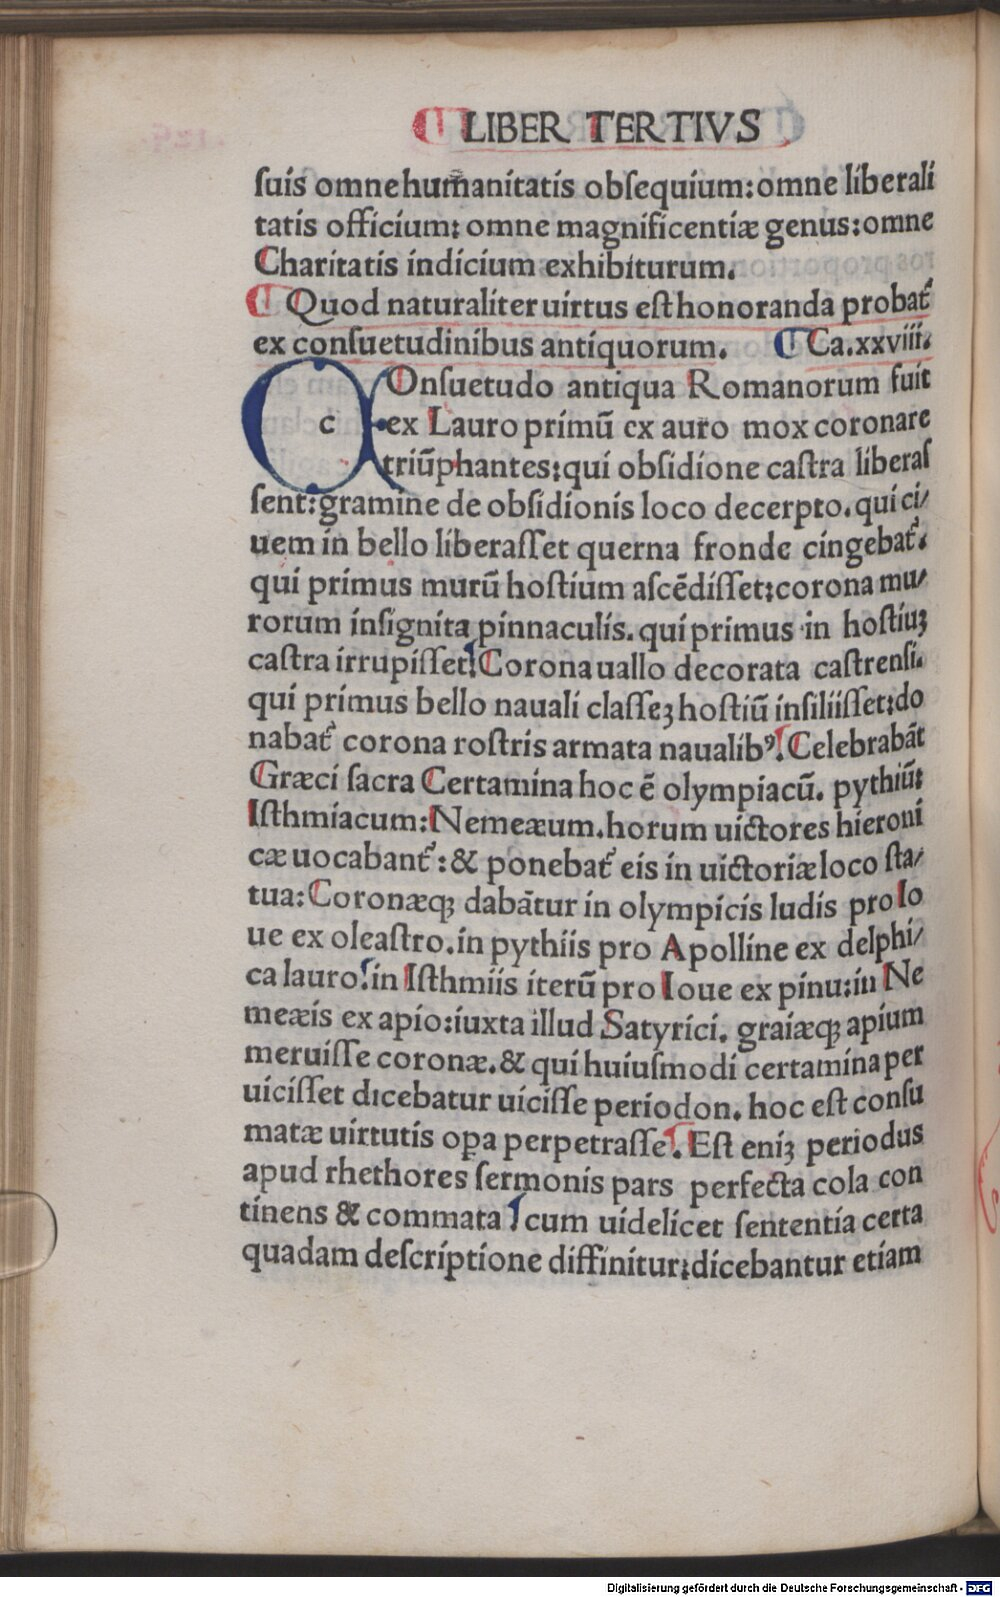 LIBER TERTIVS
ſuis omne humanitatis obſequium: omne liberali
tatis officium: omne magnificentiæ genus: omne
Charitatis indicium exhibiturum.
Quod naturaliter uirtus eſt honoranda probat᷑
ex conſuetudinibus antiquorum. Ca.xxviii.
c Onſuetudo antiqua Romanorum fuit
ex Lauro primū ex auro mox coronare
triūphantes: qui obſidione caſtra liberaſ
ſent: gramine de obſidionis loco decerpto. qui ci/
uem in bello liberaſſet querna fronde cingebat᷑.
qui primus murū hoſtium aſcēdiſſet: corona mu/
rorum inſignita pinnaculis. qui primus in hoſtiuꝫ
caſtra irrupiſſet: Corona uallo decorata caſtrenſi.
qui primus bello nauali claſſeꝫ hoſtiū inſiliiſſet: do
nabat᷑ corona roſtris armata naualibꝰ. Celebrabāt
Græci ſacra Certamina hoc ē olympiacū. pythiū:
Iſthmiacum: Nemeæum. horum uictores hieroni
cæ uocabant᷑: & ponebat᷑ eis in uictoriæ loco ſta/
tua: Coronæqꝫ dabātur in olympicis ludis pro Io
ue ex oleaſtro. in pythiis pro Apolline ex delphi/
ca lauro: in Iſthmiis iterū pro Ioue ex pinu: in Ne
meæis ex apio: iuxta illud Satyrici. graiæqꝫ apium
meruiſſe coronæ. & qui huiuſmodi certamina per
uiciſſet dicebatur uiciſſe periodon. hoc eſt conſu
matæ uirtutis oꝑa perpetraſſe. Eſt eniꝫ periodus
apud rhethores ſermonis pars perfecta cola con
tinens & commata cum uidelicet ſententia certa
quadam deſcriptione diffinitur: dicebantur etiam
Digitalisierung gefördert durch die Deutsche Forschungsgemeinschaft - DFG